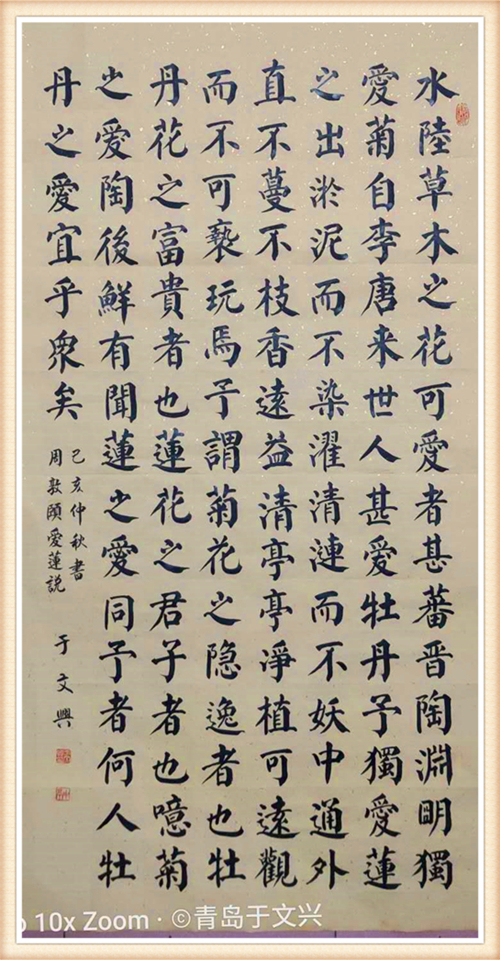 水陸草木之花可愛者甚蕃晋陶淵明獨
愛菊自李唐来世人甚愛牡丹予獨愛蓮
之出淤泥而不染濯清漣而不妖中通外
直不蔓不枝香遠益清亭亭淨植可遠觀
而不可褻玩焉予謂菊花之隐逸者也牡
丹花之富貴者也蓮花之君子者也噫菊
之愛陶後鮮有聞蓮之愛同予者何人牡
丹之愛宜乎衆矣
己亥仲秋書
周敦頤愛蓮説
于文興
10x Zoom · ©青岛于文兴